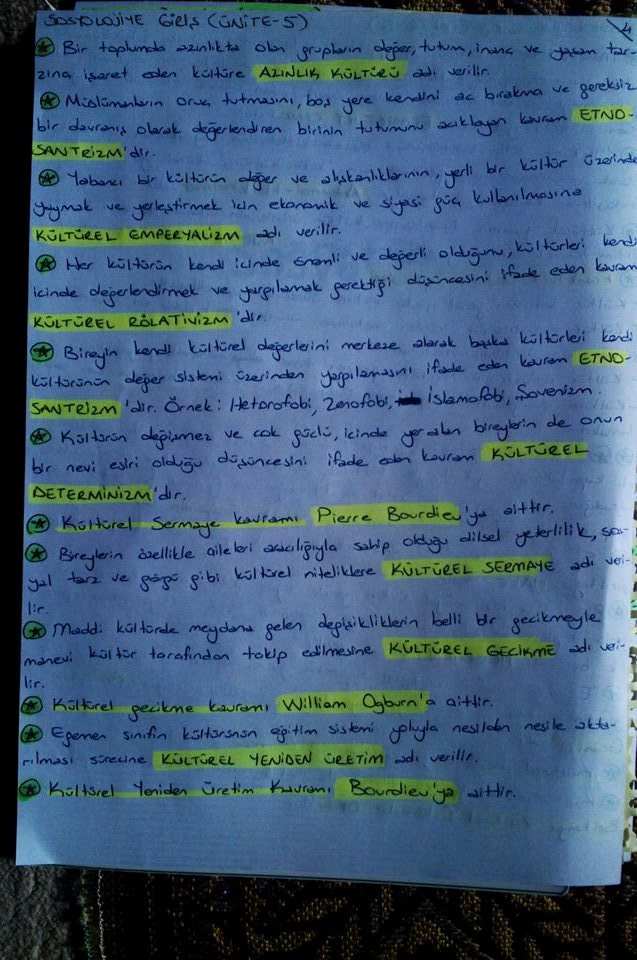 SOSYOLOJİYE GİRİŞ (ÜNİTE-5)
4
Bir toplumda azınlıkta olan grupların değer, tutum, inanç ve yaşam tar-
zına işaret eden kültüre AZINLIK KÜLTÜRÜ adı verilir.
Müslümanların oruç tutmasını, boş yere kendini aç bırakma ve gereksiz
bir davranış olarak değerlendiren birinin tutumunu açıklayan kavram ETNO-
SANTRİZM'dir.
Yabancı bir kültürün değer ve alışkanlıklarının, yerli bir kültür üzerinde
yaymak ve yerleştirmek için ekonomik ve siyasi güç kullanılmasına
KÜLTÜREL EMPERYALİZM adı verilir.
Her kültürün kendi içinde önemli ve değerli olduğunu, kültürleri kendi
içinde değerlendirmek ve yargılamak gerektiği düşüncesini ifade eden kavram
KÜLTÜREL RÖLATİVİZM'dir.
Bireyin kendi kültürel değerlerini merkeze alarak başka kültürleri kendi
kültürünün değer sistemi üzerinden yargılamasını ifade eden kavram ETNO-
SANTRİZM'dir. Örnek: Hetorofobi, Zenofobi, İslamofobi, Şovenizm.
Kültürün değişmez ve çok güçlü, içinde yer alan bireylerin de onun
bir nevi esiri olduğu düşüncesini ifade eden kavram KÜLTÜREL
DETERMİNİZM'dir.
Kültürel Sermaye kavramı Pierre Bourdieu'ya aittir.
Bireylerin özellikle aileleri aracılığıyla sahip olduğu dilsel yeterlilik, sos-
yal tarz ve görgü gibi kültürel niteliklere KÜLTÜREL SERMAYE adı veri-
lir.
Maddi kültürde meydana gelen değişikliklerin belli bir gecikmeyle
manevi kültür tarafından takip edilmesine KÜLTÜREL GECİKME adı veri-
lir.
Kültürel gecikme kavramı William Ogburn'a aittir.
Egemen sınıfın kültürünün eğitim sistemi yoluyla nesilden nesile akta-
rılması sürecine KÜLTÜREL YENİDEN ÜRETİM adı verilir.
Kültürel Yeniden Üretim Kavramı Bourdieu'ya aittir.